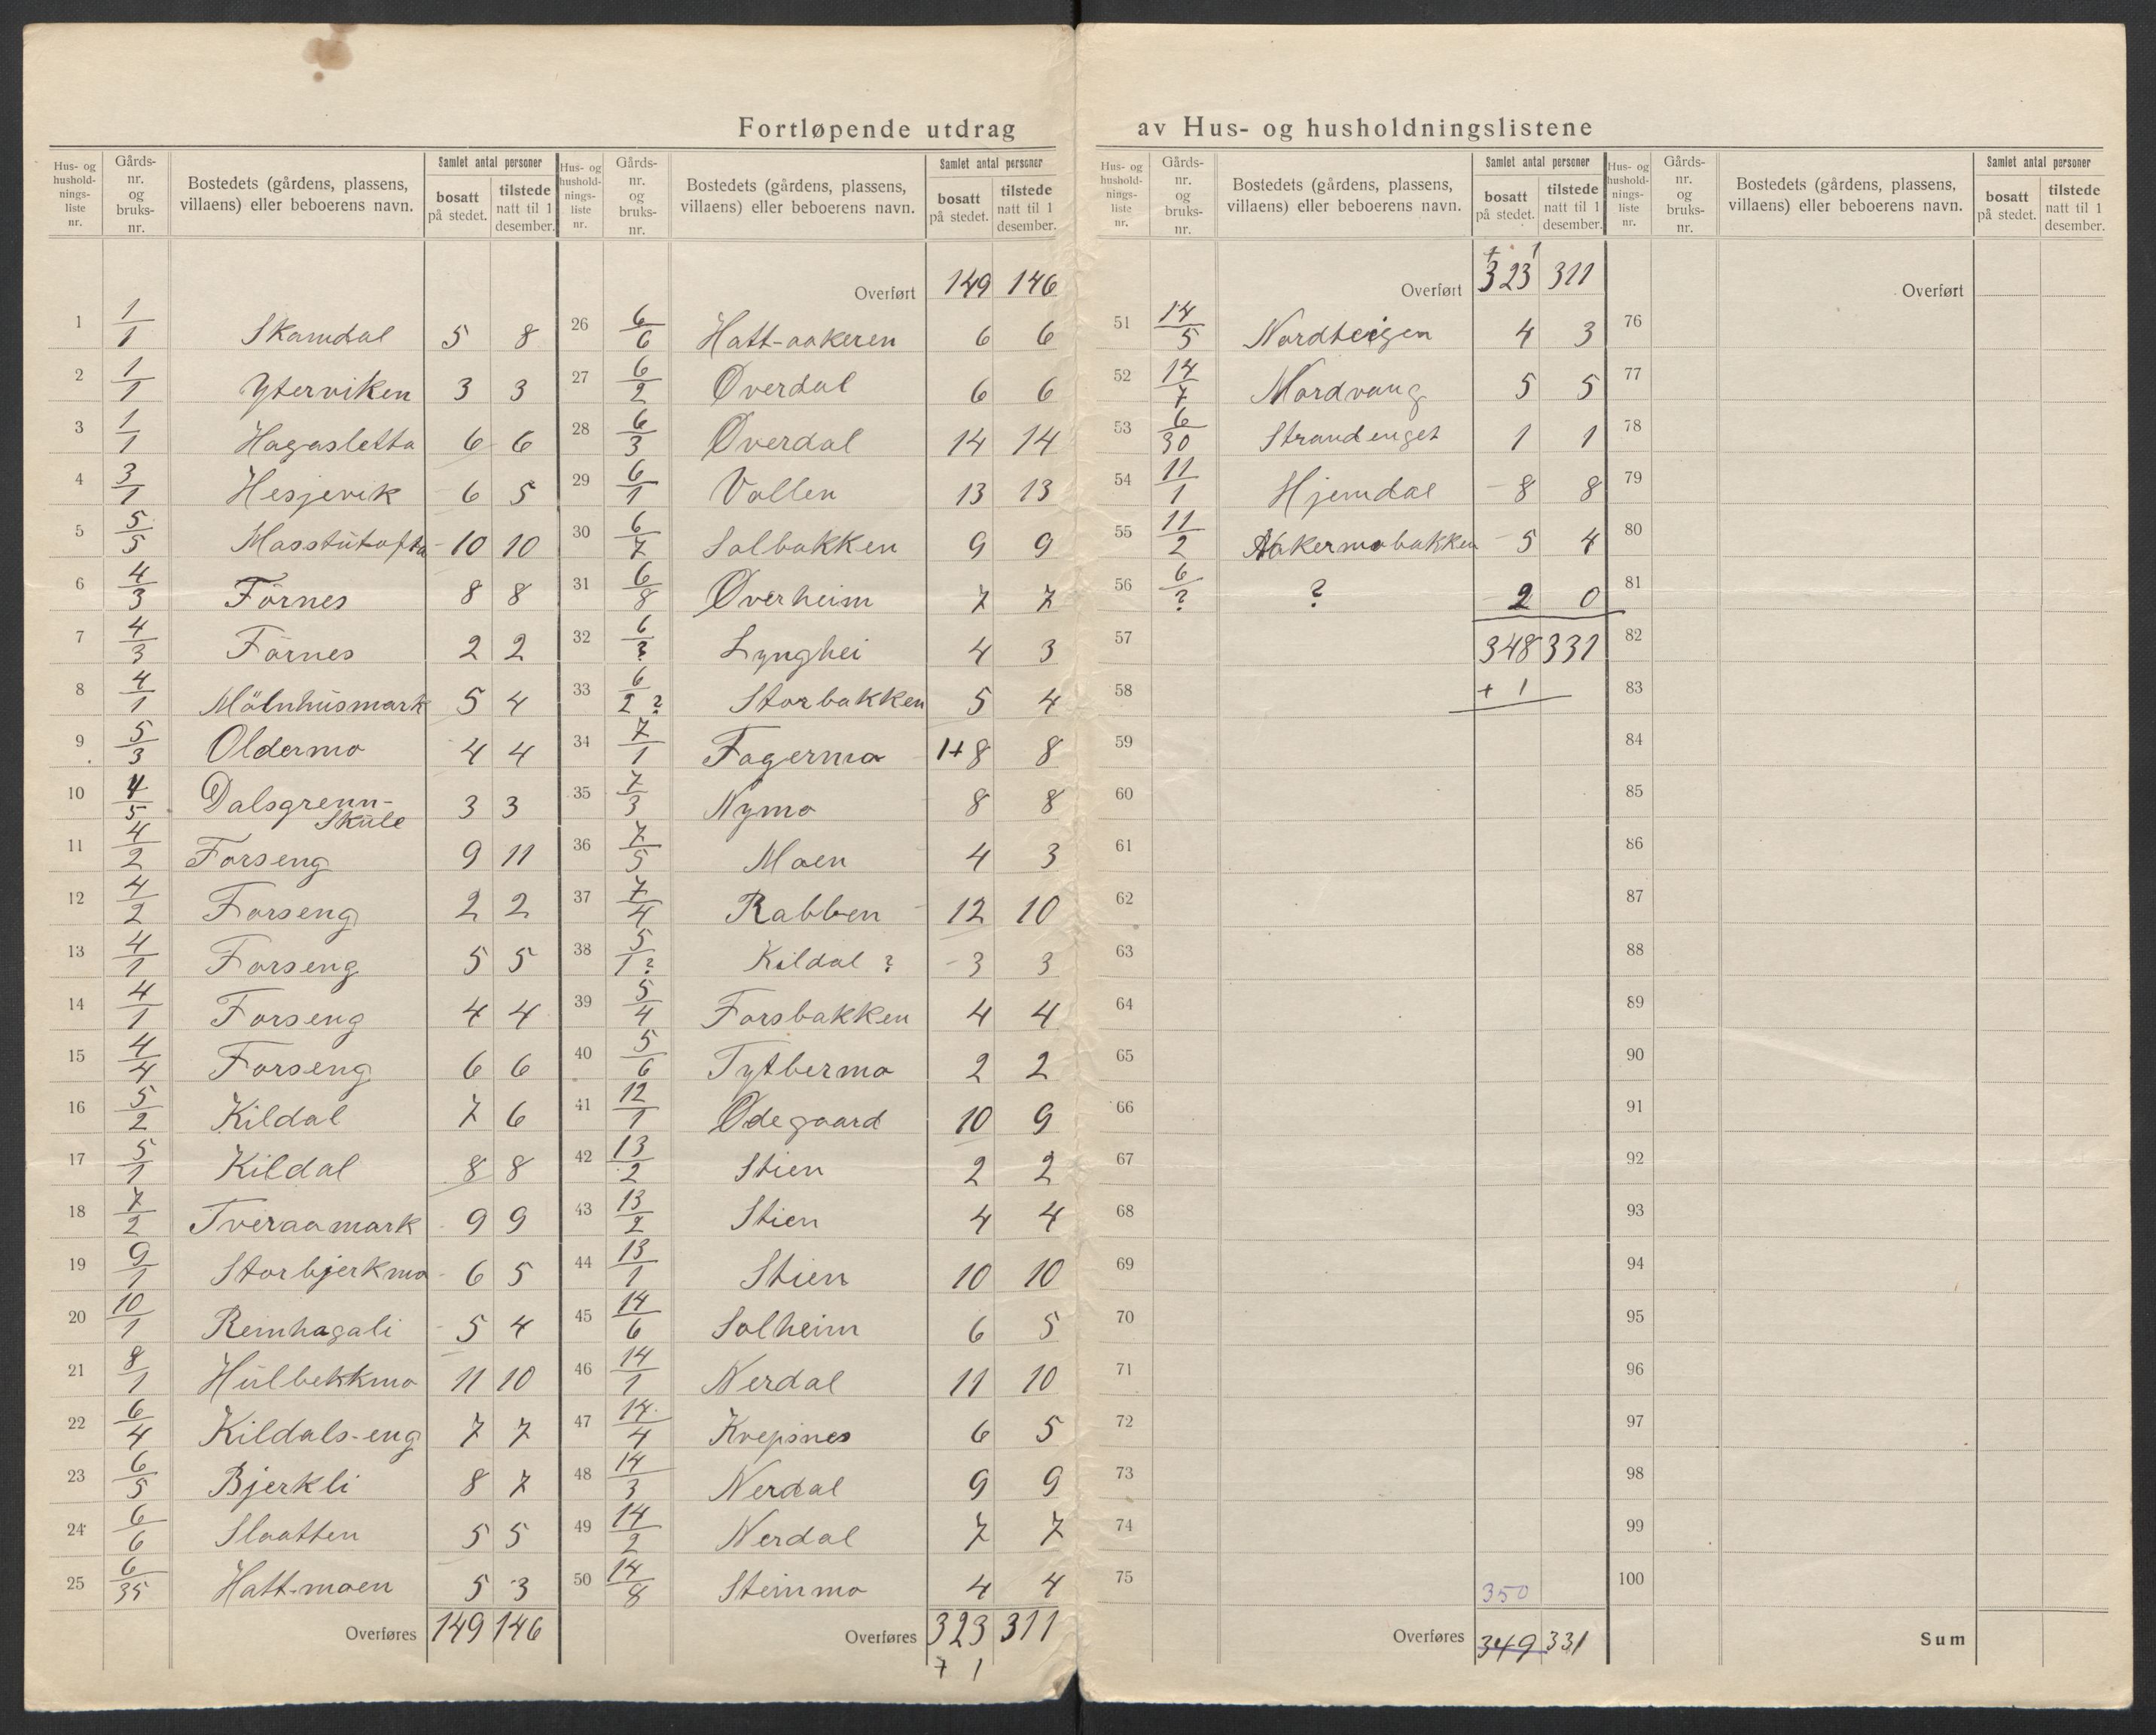 Fortløpende utdrag av Hus- og husholdningslistene
Hus- og hushold-nings-liste nr. Gårds-nr. og bruks-nr. Bostedets (gårdens, plassens, villaens) eller beboerens navn. Samlet antal personer bosatt på stedet. tilstede natt til 1 desember.
1 1/1 Skamdal 5 8
2 1/1 Yterviken 3 3
3 1/1 Hagasletta 6 6
4 3/1 Hesjevik 6 5
5 5/5 Masstutofta 10 10
6 4/3 Förnes 8 8
7 4/3 Förnes 2 2
8 4/1 Mölnhusmark 5 4
9 5/3 Oldermo 4 4
10 4/5 Dalsgrenn-Skule 3 3
11 4/2 Forseng 9 11
12 4/2 Forseng 2 2
13 4/1 Forseng 5 5
14 4/1 Forseng 4 4
15 4/4 Forseng 6 6
16 5/2 Kildal 7 6
17 5/1 Kildal 8 8
18 7/2 Tveraamark 9 9
19 9/1 Storbjerkmo 6 5
20 10/1 Reinhagali 5 4
21 8/1 Hulbekkmo 11 10
22 6/4 Kildals-eng 7 7
23 6/5 Bjerkli 8 7
24 6/6 Slaatten 5 5
25 6/35 Hatt-moen 5 3
Overføres 149 146
Hus- og hushold-nings-liste nr. Gårds-nr. og bruks-nr. Bostedets (gårdens, plassens, villaens) eller beboerens navn. Samlet antal personer bosatt på stedet. tilstede natt til 1 desember.
Overført 149 146
26 6/6 Hatt-aakeren 6 6
27 6/2 Øverdal 6 6
28 6/3 Øverdal 14 14
29 6/1 Vollen 13 13
30 6/7 Solbakken 9 9
31 6/8 Øverheim 7 7
32 6/? Lynghei 4 3
33 6/2 ? Storbakken 5 4
34 7/1 Fagermo 1+8 8
35 7/3 Nymo 8 8
36 7/5 Moen 4 3
37 7/4 Rabben 12 10
38 5/1 ? Kildal ? 3 3
39 5/4 Forsbakken 4 4
40 5/6 Tytbermo 2 2
41 12/1 Ødegaard 10 9
42 13/2 Stien 2 2
43 13/2 Stien 4 4
44 13/1 Stien 10 10
45 14/6 Solheim 6 5
46 14/1 Nerdal 11 10
47 14/4 Krepsnes 6 5
48 14/3 Nerdal 9 9
49 14/2 Nerdal 7 7
50 14/8 Steinmo 4 4
Overføres 323 311
+ 1
Hus- og hushold-nings-liste nr. Gårds-nr. og bruks-nr. Bostedets (gårdens, plassens, villaens) eller beboerens navn. Samlet antal personer bosatt på stedet. tilstede natt til 1 desember.
+ 1
Overført 323 311
51 14/5 Nordteigen 4 3
52 14/7 Nordvang 5 5
53 6/30 Strandenget 1 1
54 11/1 Hjemdal 8 8
55 11/2 Aakermobakken 5 4
56 6/? ? 2 0
57 348 331
58 + 1
59
60
61
62
63
64
65
66
67
68
69
70
71
72
73
74
75 350
Overføres 349 331
Hus- og hushold-nings-liste nr. Gårds-nr. og bruks-nr. Bostedets (gårdens, plassens, villaens) eller beboerens navn. Samlet antal personer bosatt på stedet. tilstede natt til 1 desember.
Overført
76
77
78
79
80
81
82
83
84
85
86
87
88
89
90
91
92
93
94
95
96
97
98
99
100
Sum